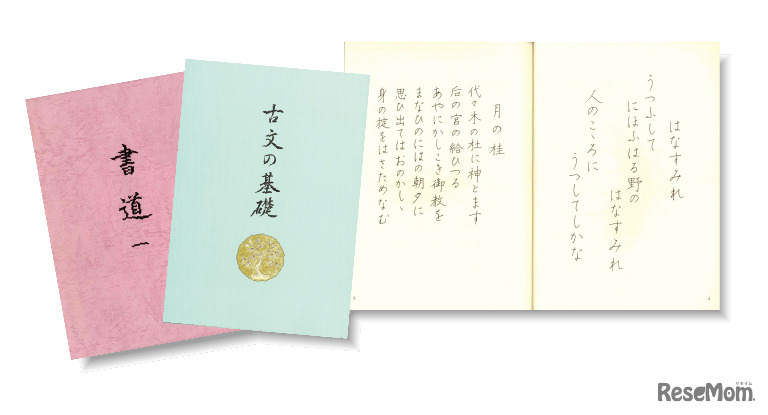 書道一
古文の基礎
はなすみれ
うつふして
にほふはる野の
はなすみれ
人のこゝろに
うつしてしかな
月の桂
代々木の杜に神とます
后の宮の給ひつる
あやにかしこき御教を
まなびのにはの朝夕に
思ひ出てはおのかしゝ
身の掟をはさためなむ
リセマム
ReseMom.